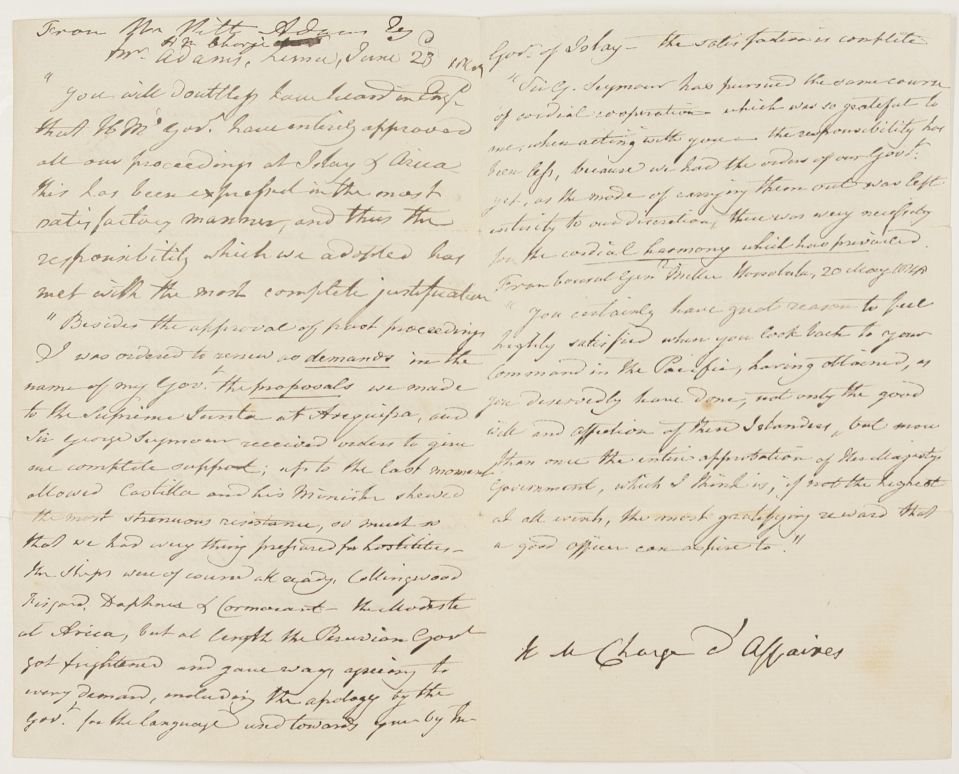 From Mr Pitt Adams Esq
H M Chargé
Mr. Adams, Lima, June 23d
" You will doubtless have heard in Engd.
that H Ms Govt. have entirely approved
all our proceedings at Islay & Arica
this has been expressed in the most
satisfactory manner, and thus the
responsibility which we adopted has
met with the most complete justification
" Besides the approval of past proceedings
I was ordered to renew as demands in the
name of my Govt. the proposals we made
to the Supreme Junta at Arequipa, and
Sir George Seymour received orders to give
me complete support; up to the last moment
allowed Castilla and his Minister shewed
the most strenuous resistance, so much so
that we had every thing prepared for hostilities—
the ships were of course all ready, Collingwood
Fisgard, Daphne & Cormorant— the Modeste
at Arica, but at length the Peruvian Govt
got frightened and gave way, agreeing to
every demand, including the apology by the
Govt. for the language used towards you by the
Govr. of Islay— the satisfaction is complete
" Sir G. Seymour has pursued the same course
of cordial cooperation which was so grateful to
me, when acting with you— the responsibility has
been less, because we had the orders of our Govt.
yet, as the mode of carrying them out was left
entirely to our discretion, there was every necessity
for the cordial harmony which has prevailed.
From Consul Genl. Miller Honolulu, 20 May
" You certainly have great reason to feel
highly satisfied when you look back to your
command in the Pacific, having obtained, as
you deservedly have done, not only the good
will and affection of these Islanders, but more
than once the entire approbation of Her Majestys
Government, which I think is, if not the highest
at all events, the most gratifying reward that
a good officer can aspire to."
H M Charge d'Affaires